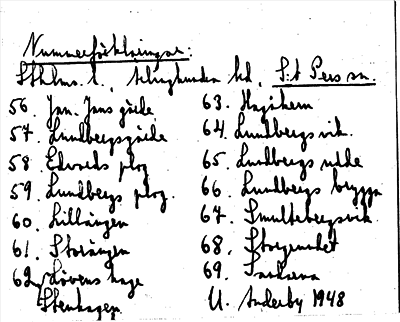 Nummerförklaringar:
Sthlms l., Åkerbo hd, S:t Pers sn.
56. Jan-Jans gärde
57. Lundbergsgärde
58 Edvards plog
59. Lundbergs plog.
60. Lillängen
61. Storängen
62. Lövens hage
Stenhagen
63. Hagihem
64. Lundbergs vik.
65. Lundbergs udde
66. Lundbergs brygga
67. Smultebergsvik.
68. Storgrundet
69.
U. Anderby 1948